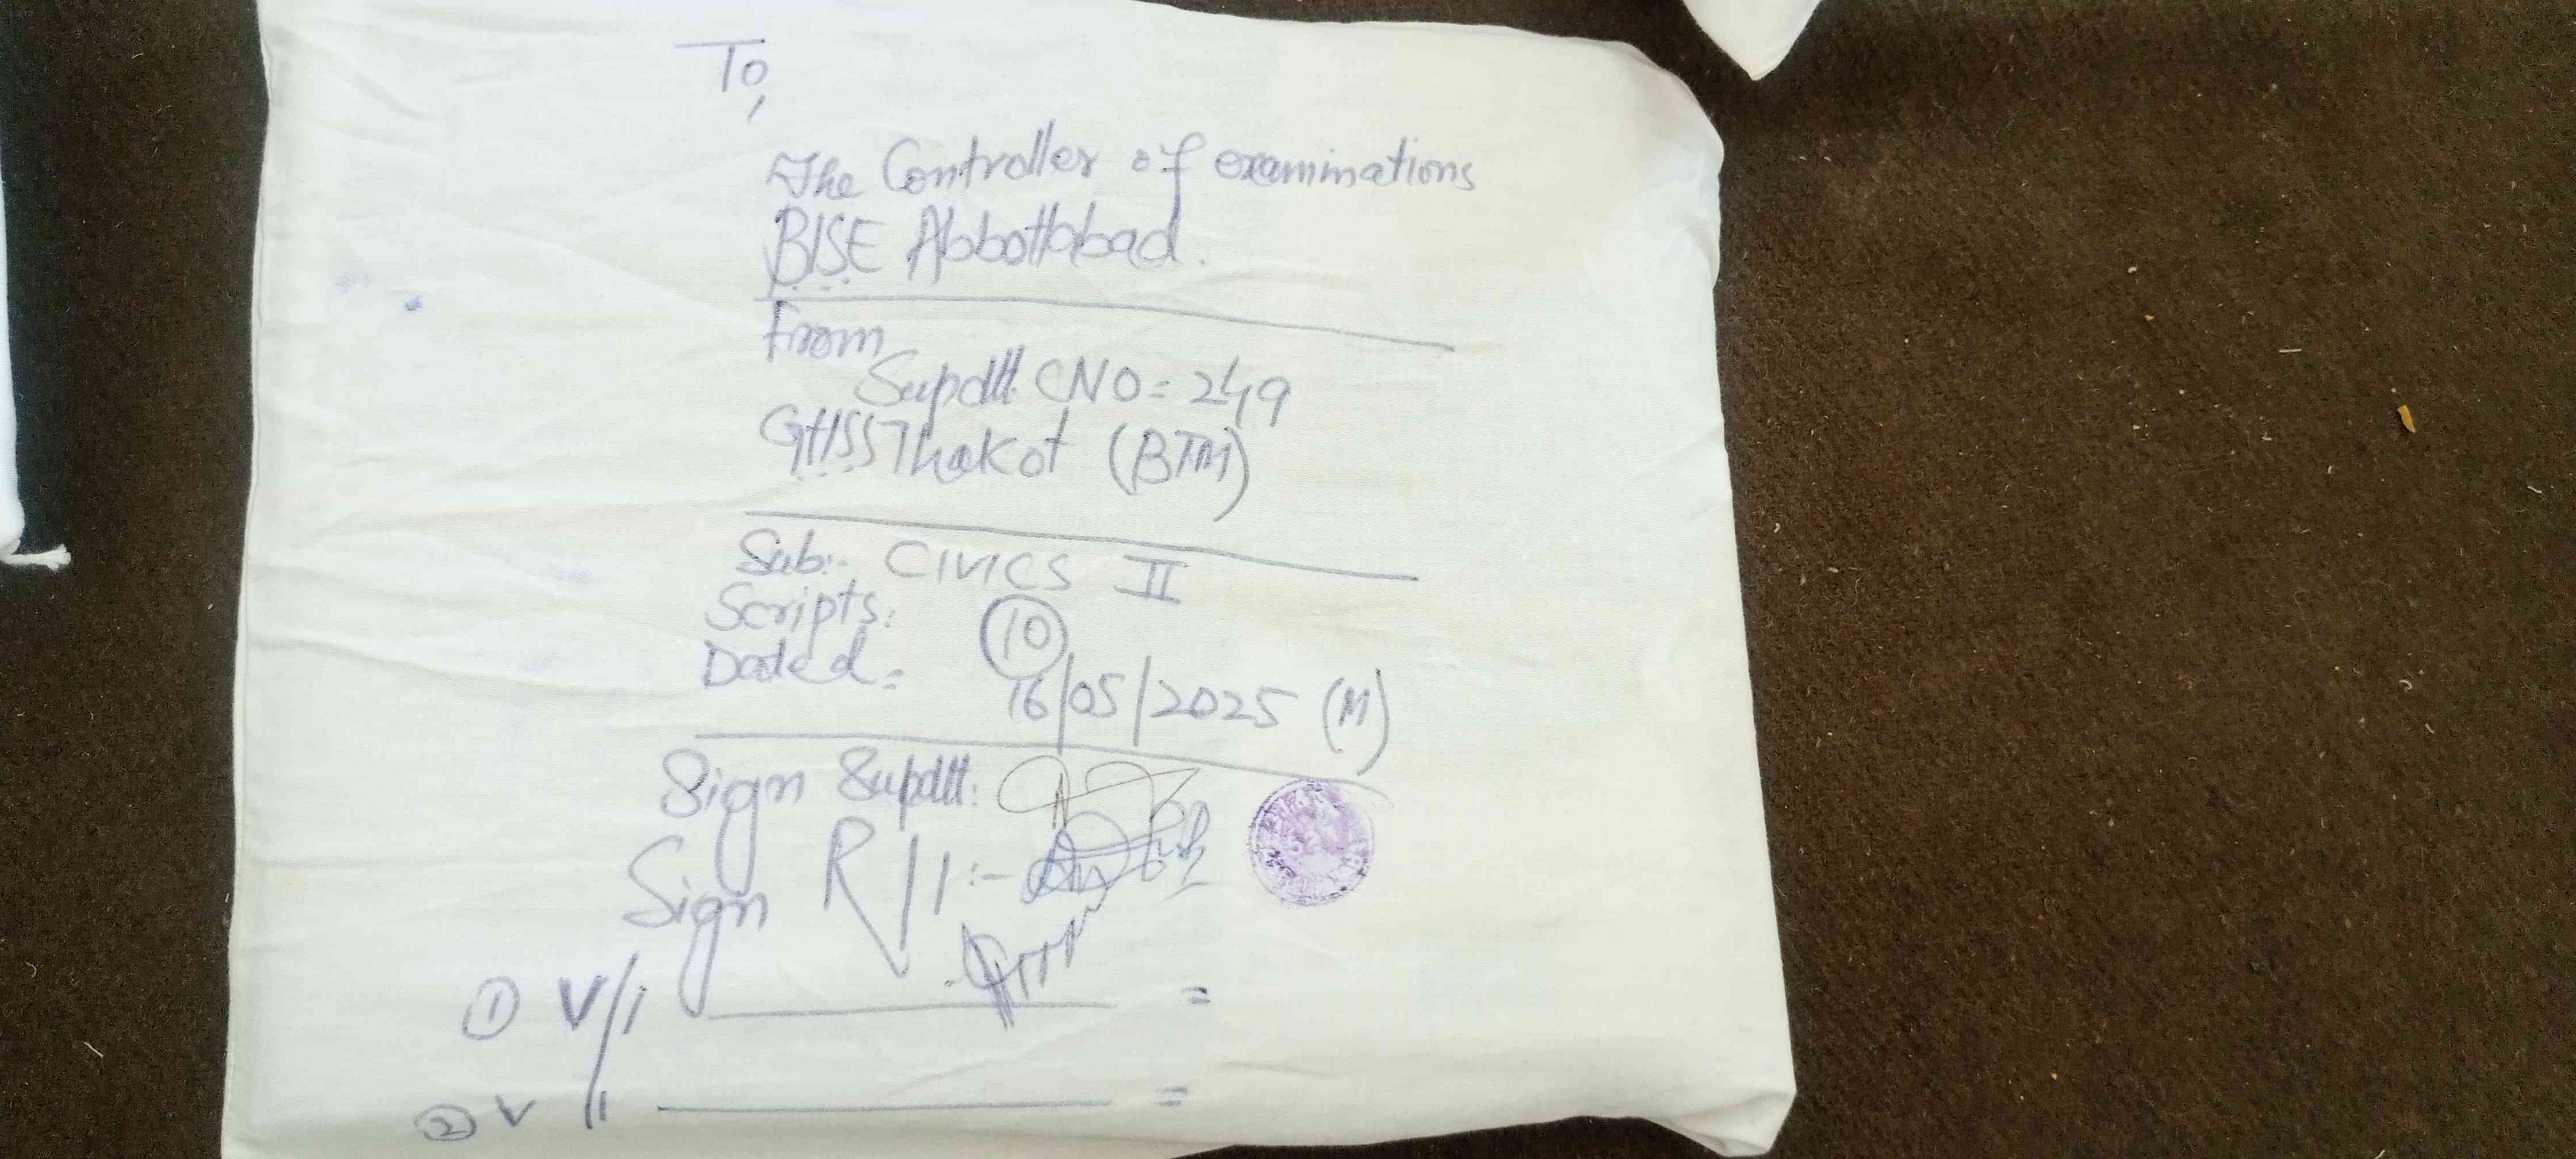 To,
The Controller of examinations
BISE Abbottabad.
From
Supdtt. CNO = 249
GHSS Thakot (BTM)
Sub:- CIVICS II
Scripts: 10
Dated = 16/05/2025 (M)
Sign Supdtt:
Sign R/I :-
① V/I =
② V/I =